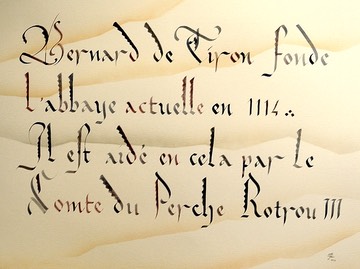 Bernard de Tiron fonde
l'abbaye actuelle en 1114 .:
Il est aidé en cela par le
Comte du Perche Rotrou III